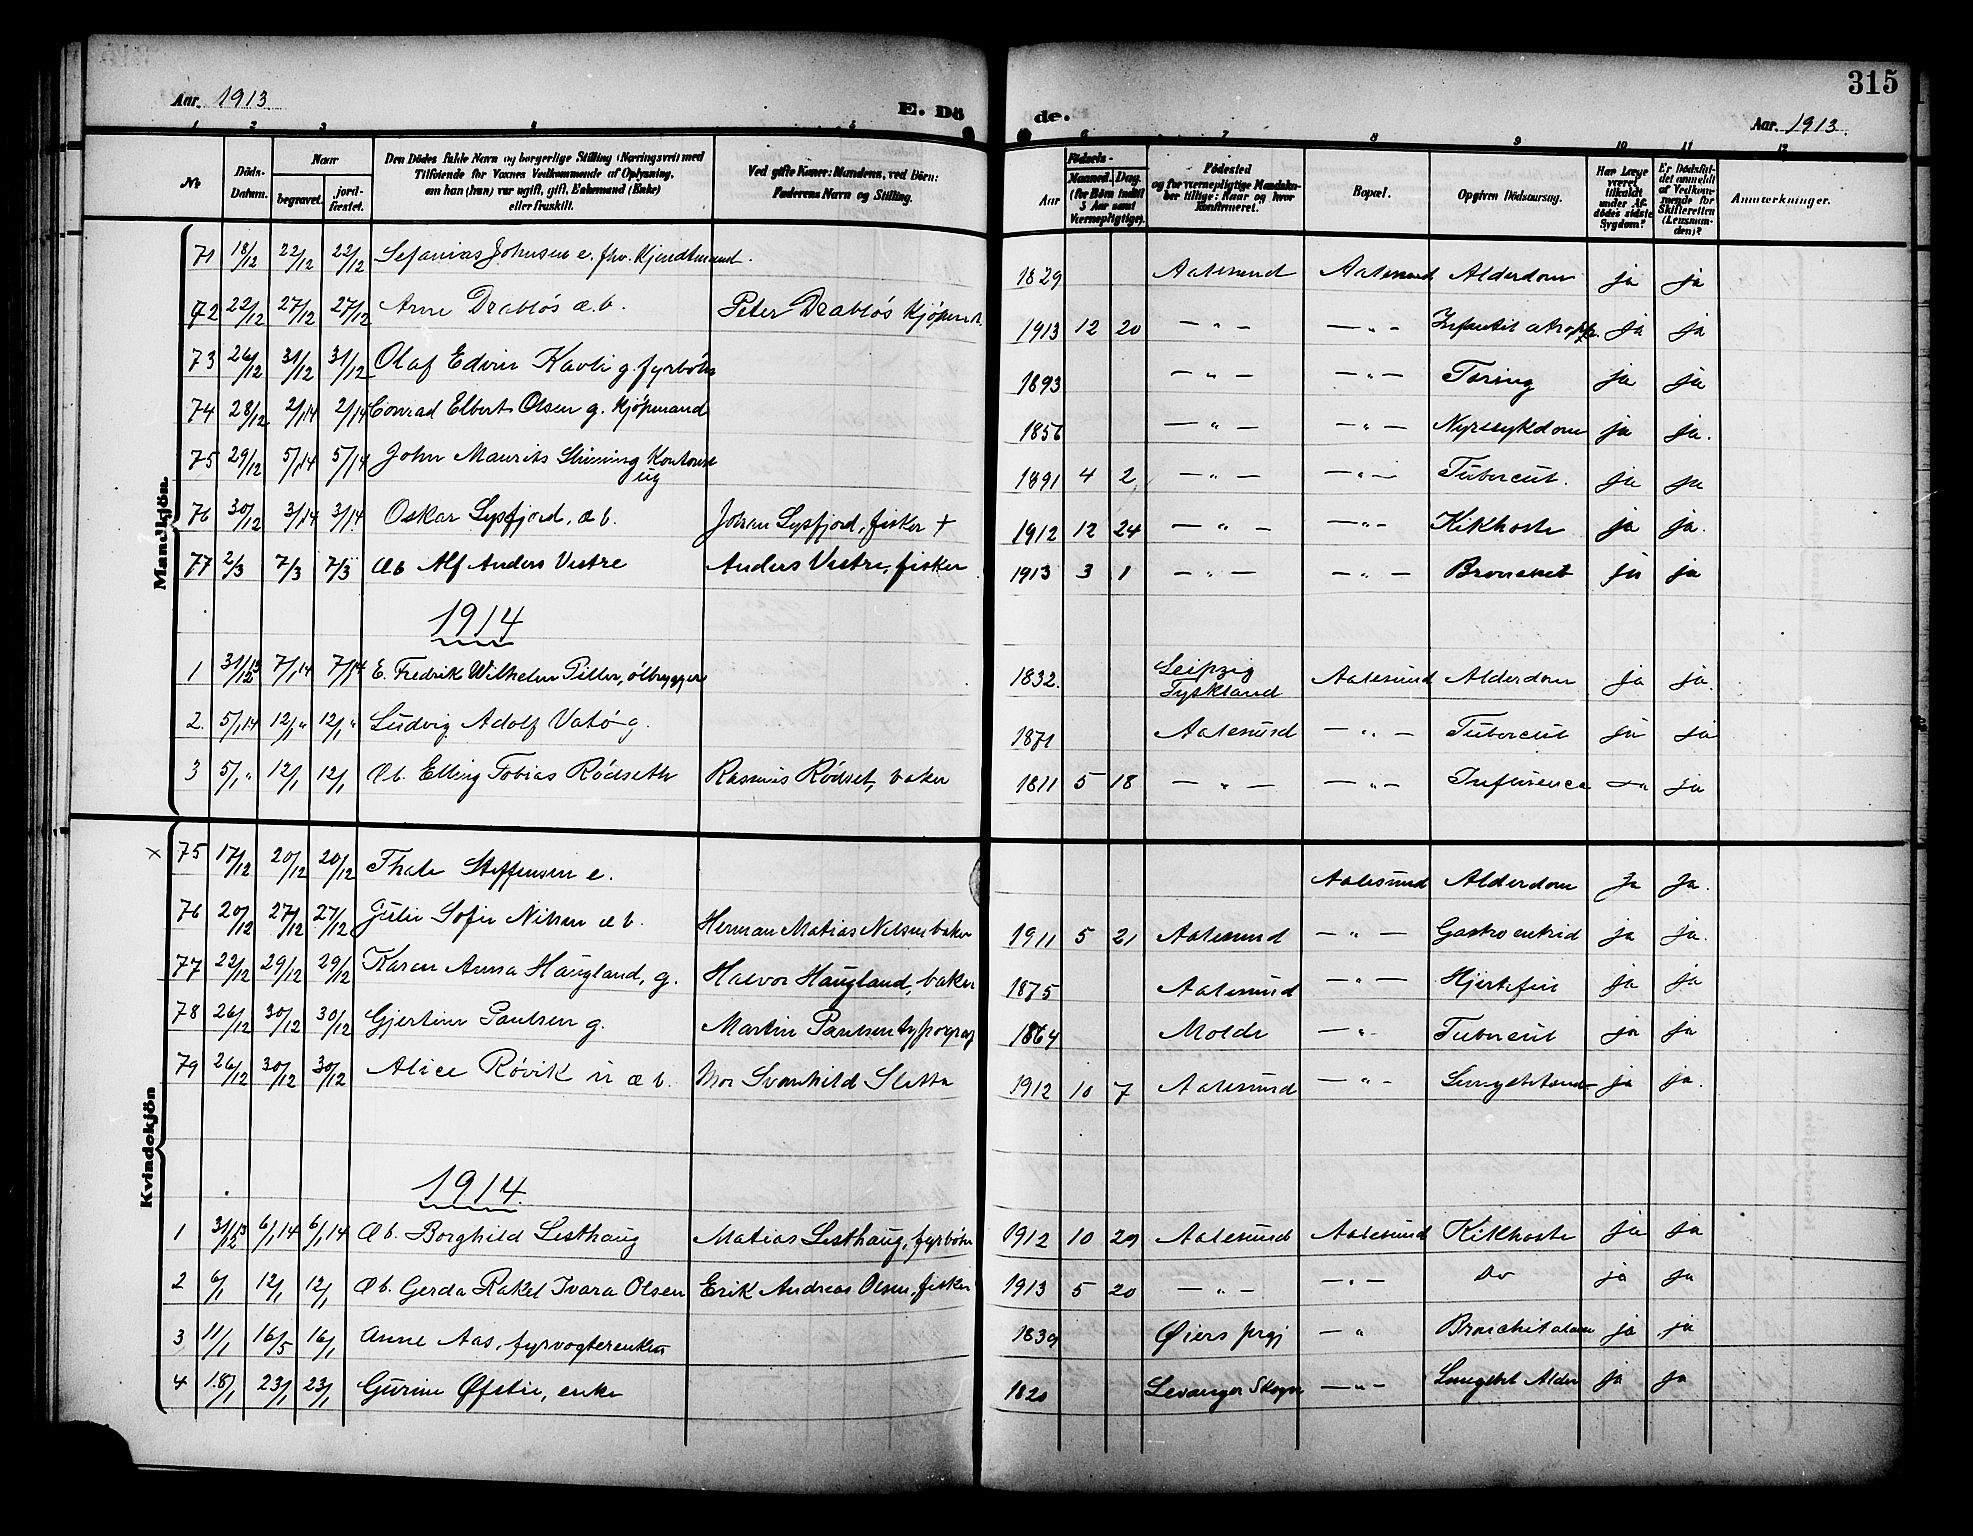 315
Aar. 1913. E. Döde. Aar. 1913.
1 2 3 4 5 6 7 8 9 10 11 12
No
Döds-Datum.
Naar
begravet. jordfæstet.
Den Dödes fulde Navn og borgerlige Stilling (Næringsvei) med
Tilföiende for Voxnes Vedkommende af Oplysning,
om han (hun) var ugift, gift, Enkemand (Enke)
eller fraskilt.
Ved gifte Koner: Mandens, ved Börn:
Faderens Navn og Stilling.
Födsels-
Aar Maaned. Dag.
(for Börn indtil
5 Aar samt
Værnepligtige).
Födested
og for værnepligtige Mandska-
ber tillige: Naar og hvor
konfirmeret.
Bopæl.
Opgiven Dödsaarsag.
Har Læge
været
tilkaldt
under Af-
dödes sidste
Sygdom?
Er Dödsfal-
det anmeldt
af Vedkom-
mende for
Skifteretten
(Lensman-
den)?
Anmærkninger.
Mandkjön.
71 18/12 22/12 22/12 Sefanias Johnsen e. fhv. Kjendtmand. 1829 Aalesund Aalesund Alderdom ja ja
72 22/12 27/12 27/12 Arne Drabløs æ.b. Peter Drabløs Kjøpm. 1913 12 20 — " — — " — Infantil atrophi ja ja
73 26/12 31/12 31/12 Olaf Edvin Kavli g. fyrbøter 1893 — " — — " — Tæring ja ja
74 28/12 2/1 14 2/1 14 Conrad Elbert Olsen g. kjøpmand 1856 — " — — " — Nyresykdom ja ja.
75 29/12 5/1 14 5/1 14 John Maurits Kontorist ug 1891 4 2 — " — — " — Tubercul. ja ja
76 30/12 3/1 14 3/1 14 Oskar Lysfjord, æb. Johan Lysfjord, fisker + 1912 12 24 — " — — " — Kikhoste ja ja.
77 2/3 7/3 7/3 æb Alf Anders Vestre Anders Vestre, fisker 1913 3 1 — " — — " — Bronchit ja ja
1914
1 31/12 13 7/1 14 7/1 14 E. Fredrik Wilhelm Piller, ølbrygger 1832. Leipzig Tyskland Aalesund Alderdom ja ja.
2. 5/1 14 12/1 " 12/1 " Ludvig Adolf Vatø g. 1871 Aalesund — " — Tubercul ja ja
3 5/1 " 12/1 12/1 Æb. Elling Tobias Rødseth Rasmus Rødset, baker 1811 5 18 — " — — " — Influence ja ja
Kvindekjön
x 75 17/12 20/12 20/12 Thale Steffensen e. Aalesund Alderdom Ja Ja.
76 20/12 27/12 27/12 Julie Sofie Nilsen æb. Herman Matias Nilsen baker 1911 5 21 Aalesund — " — Gastroenterid ja ja.
77 22/12 29/12 29/12 Karen Anna Haugland, g. Halvor Haugland, baker 1875 Aalesund — " — Hjertefeil ja ja
78 26/12 30/12 30/12 Gjertine Paulsen g. Martin Paulsen typograf 1864 Molde — " Tubercul ja ja
79 26/12 30/12 30/12 Alice Røvik u æb. Mor Svanhild Sletta 1912 10 7 Aalesund — " — Lungebetænd. ja ja.
1914.
1 31/12 13 6/1 14 6/1 14 Æb. Borghild Lesthaug Matias Lesthaug, fyrbøter 1912 10 29 Aalesund Aalesund Kikhoste ja ja
2 6/1 12/1 12/1 Æb. Gerda Rakel Ivara Olsen Erik Andreas Olsen, fisker 1913 5 20 — " — — " — Do ja ja
3 11/1 16/5 16/1 Anne Aas, fyrvogterenke 1839 Øiers prgj — " ja ja
4 18/1 23/1 23/1 Gurine Øfstie, enke 1820 Levanger Skogn — " — Lungebet Alder ja ja